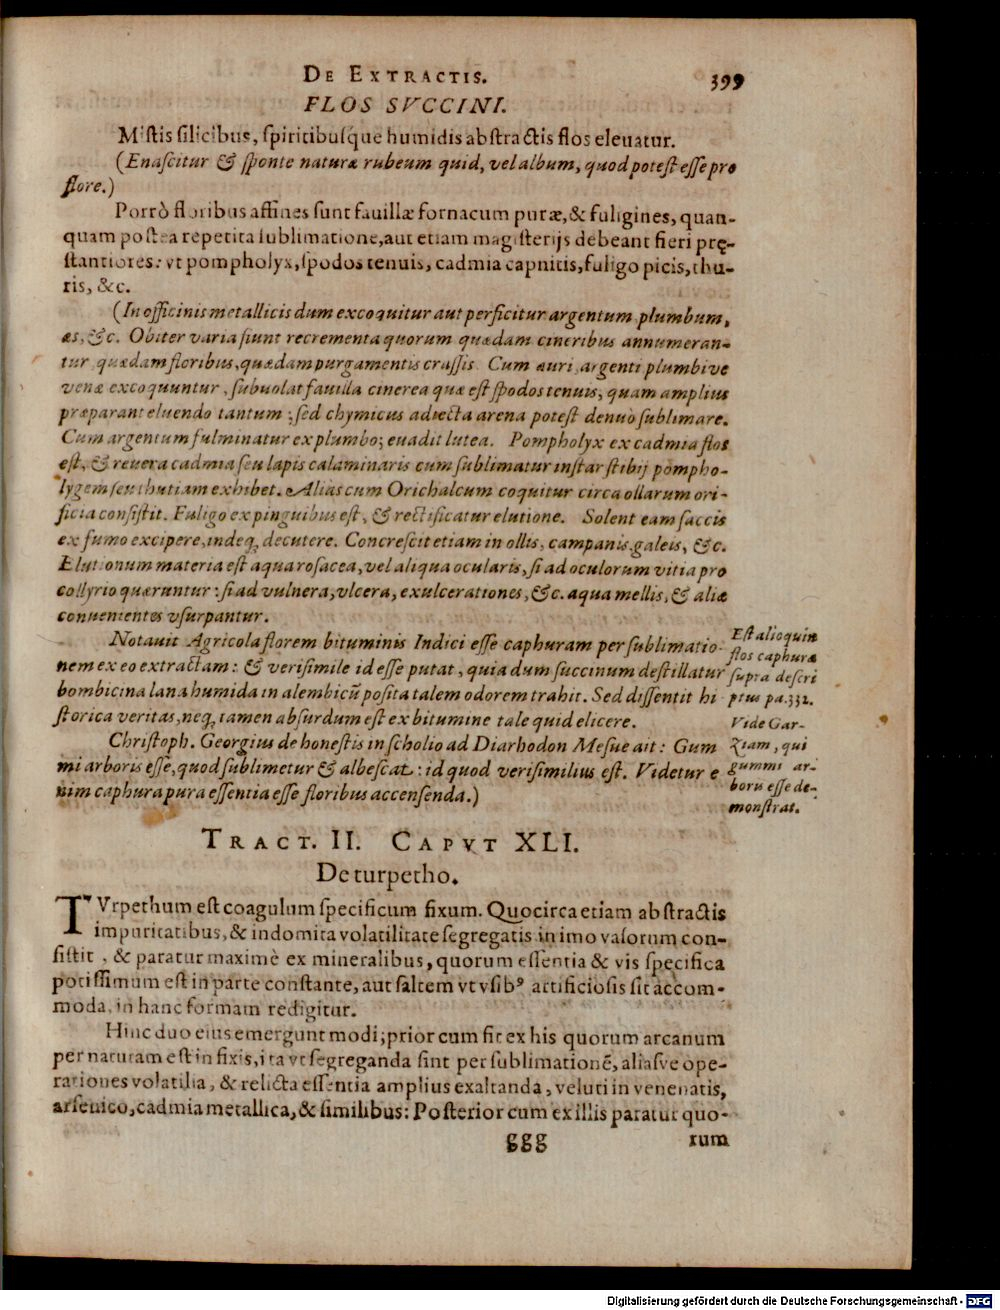 DE EXTRACTIS. 399
FLOS SVCCINI.
Mistis silicibus, spiritibusque humidis abstractis flos eleuatur.
(Enascitur & sponte naturæ rubeum quid, vel album, quod potest esse pro
flore.)
Porrò floribus affines sunt fauillæ fornacum puræ, & fuligines, quan-
quam postea repetita sublimatione, aut etiam magisterijs debeant fieri pre-
stantiores: vt pompholyx, spodos tenuis, cadmia capnitis, fuligo picis, thu-
ris, &c.
(In officinis metallicis dum excoquitur aut perficitur argentum plumbum,
æs, &c. Obiter varia fiunt recrementa quorum quædam cineribus annumeran-
tur quædam floribus, quædam purgamentis crassis. Cum auri, argenti plumbive
venæ excoquuntur, subuolat fauilla cinerea quæ est spodos tenuis, quam amplius
præparant eluendo tantum; sed chymicus adiecta arena potest denuò sublimare.
Cum argentum fulminatur ex plumbo; euadit lutea. Pompholyx ex cadmia flos
est, & reuera cadmia seu lapis calaminaris cum sublimatur instar stibij pompho-
lygem seu thutiam exhibet. Alias cum Orichalcum coquitur circa ollarum ori-
ficia consistit. Fuligo ex pinguibus est, & rectificatur elutione. Solent eam saccis
ex fumo excipere, indeq; decutere. Concrescit etiam in ollis, campanis, galeis, &c.
Elutionum materia est aqua rosacea, vel aliqua ocularis, si ad oculorum vitia pro
collyrio quæruntur: si ad vulnera, vlcera, exulcerationes, &c. aqua mellis, & aliæ
conuenientes vsurpantur.
Notauit Agricola florem bituminis Indici esse caphuram per sublimatio-
nem ex eo extractam: & verisimile id esse putat, quia dum succinum destillatur
bombicina lana humida in alembicũ posita talem odorem trahit. Sed dissentit hi
storica veritas, neq; tamen absurdum est ex bitumine tale quid elicere.
Christoph. Georgius de honestis in scholio ad Diarhodon Mesue ait: Gum
mi arboris esse, quod sublimetur & albescat: id quod verisimilius est. Videtur e
nim caphura pura essentia esse floribus accensenda.)
Est alioquin
flos caphuræ
supra descri
ptus pa. 332.
Vide Gar-
ziam, qui
gummi ar-
boris esse de-
monstrat.
TRACT. II. CAPVT XLI.
De turpetho.
TVrpethum est coagulum specificum fixum. Quocirca etiam abstractis
impuritatibus, & indomita volatilitate segregatis in imo vasorum con-
sistit, & paratur maximè ex mineralibus, quorum essentia & vis specifica
potissimum est in parte constante, aut saltem vt vsibꝰ artificiosis sit accom-
moda, in hanc formam redigitur.
Hinc duo eius emergunt modi; prior cum fit ex his quorum arcanum
per naturam est in fixis, ita vt segreganda sint per sublimationẽ, aliasve ope-
rationes volatilia, & relicta essentia amplius exaltanda, veluti in venenatis,
arsenico, cadmia metallica, & similibus: Posterior cum ex illis paratur quo-
ggg rum
Digitalisierung gefördert durch die Deutsche Forschungsgemeinschaft - DFG